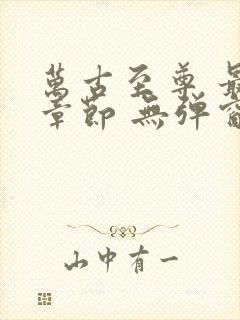 萬古至尊 最
章節 無彈窗
山中有一